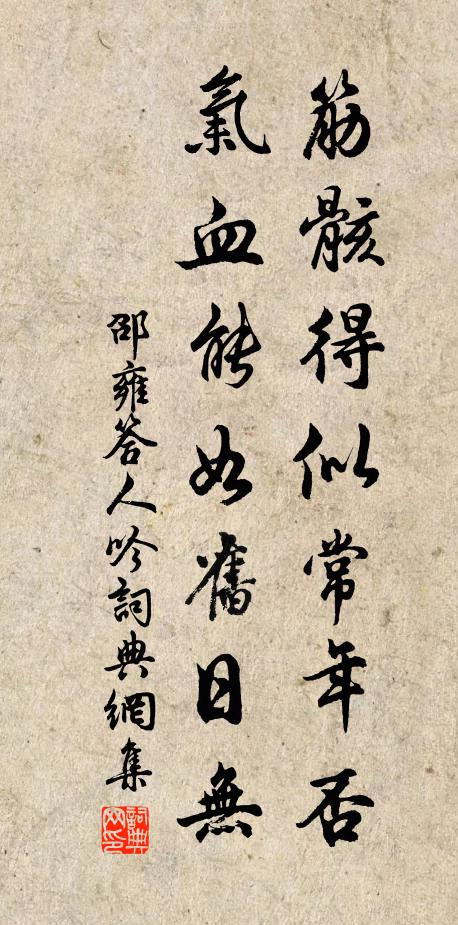 筋骸得似常年否
氣血能如舊日無
邵雍答人吟詞典網集
詞典网印